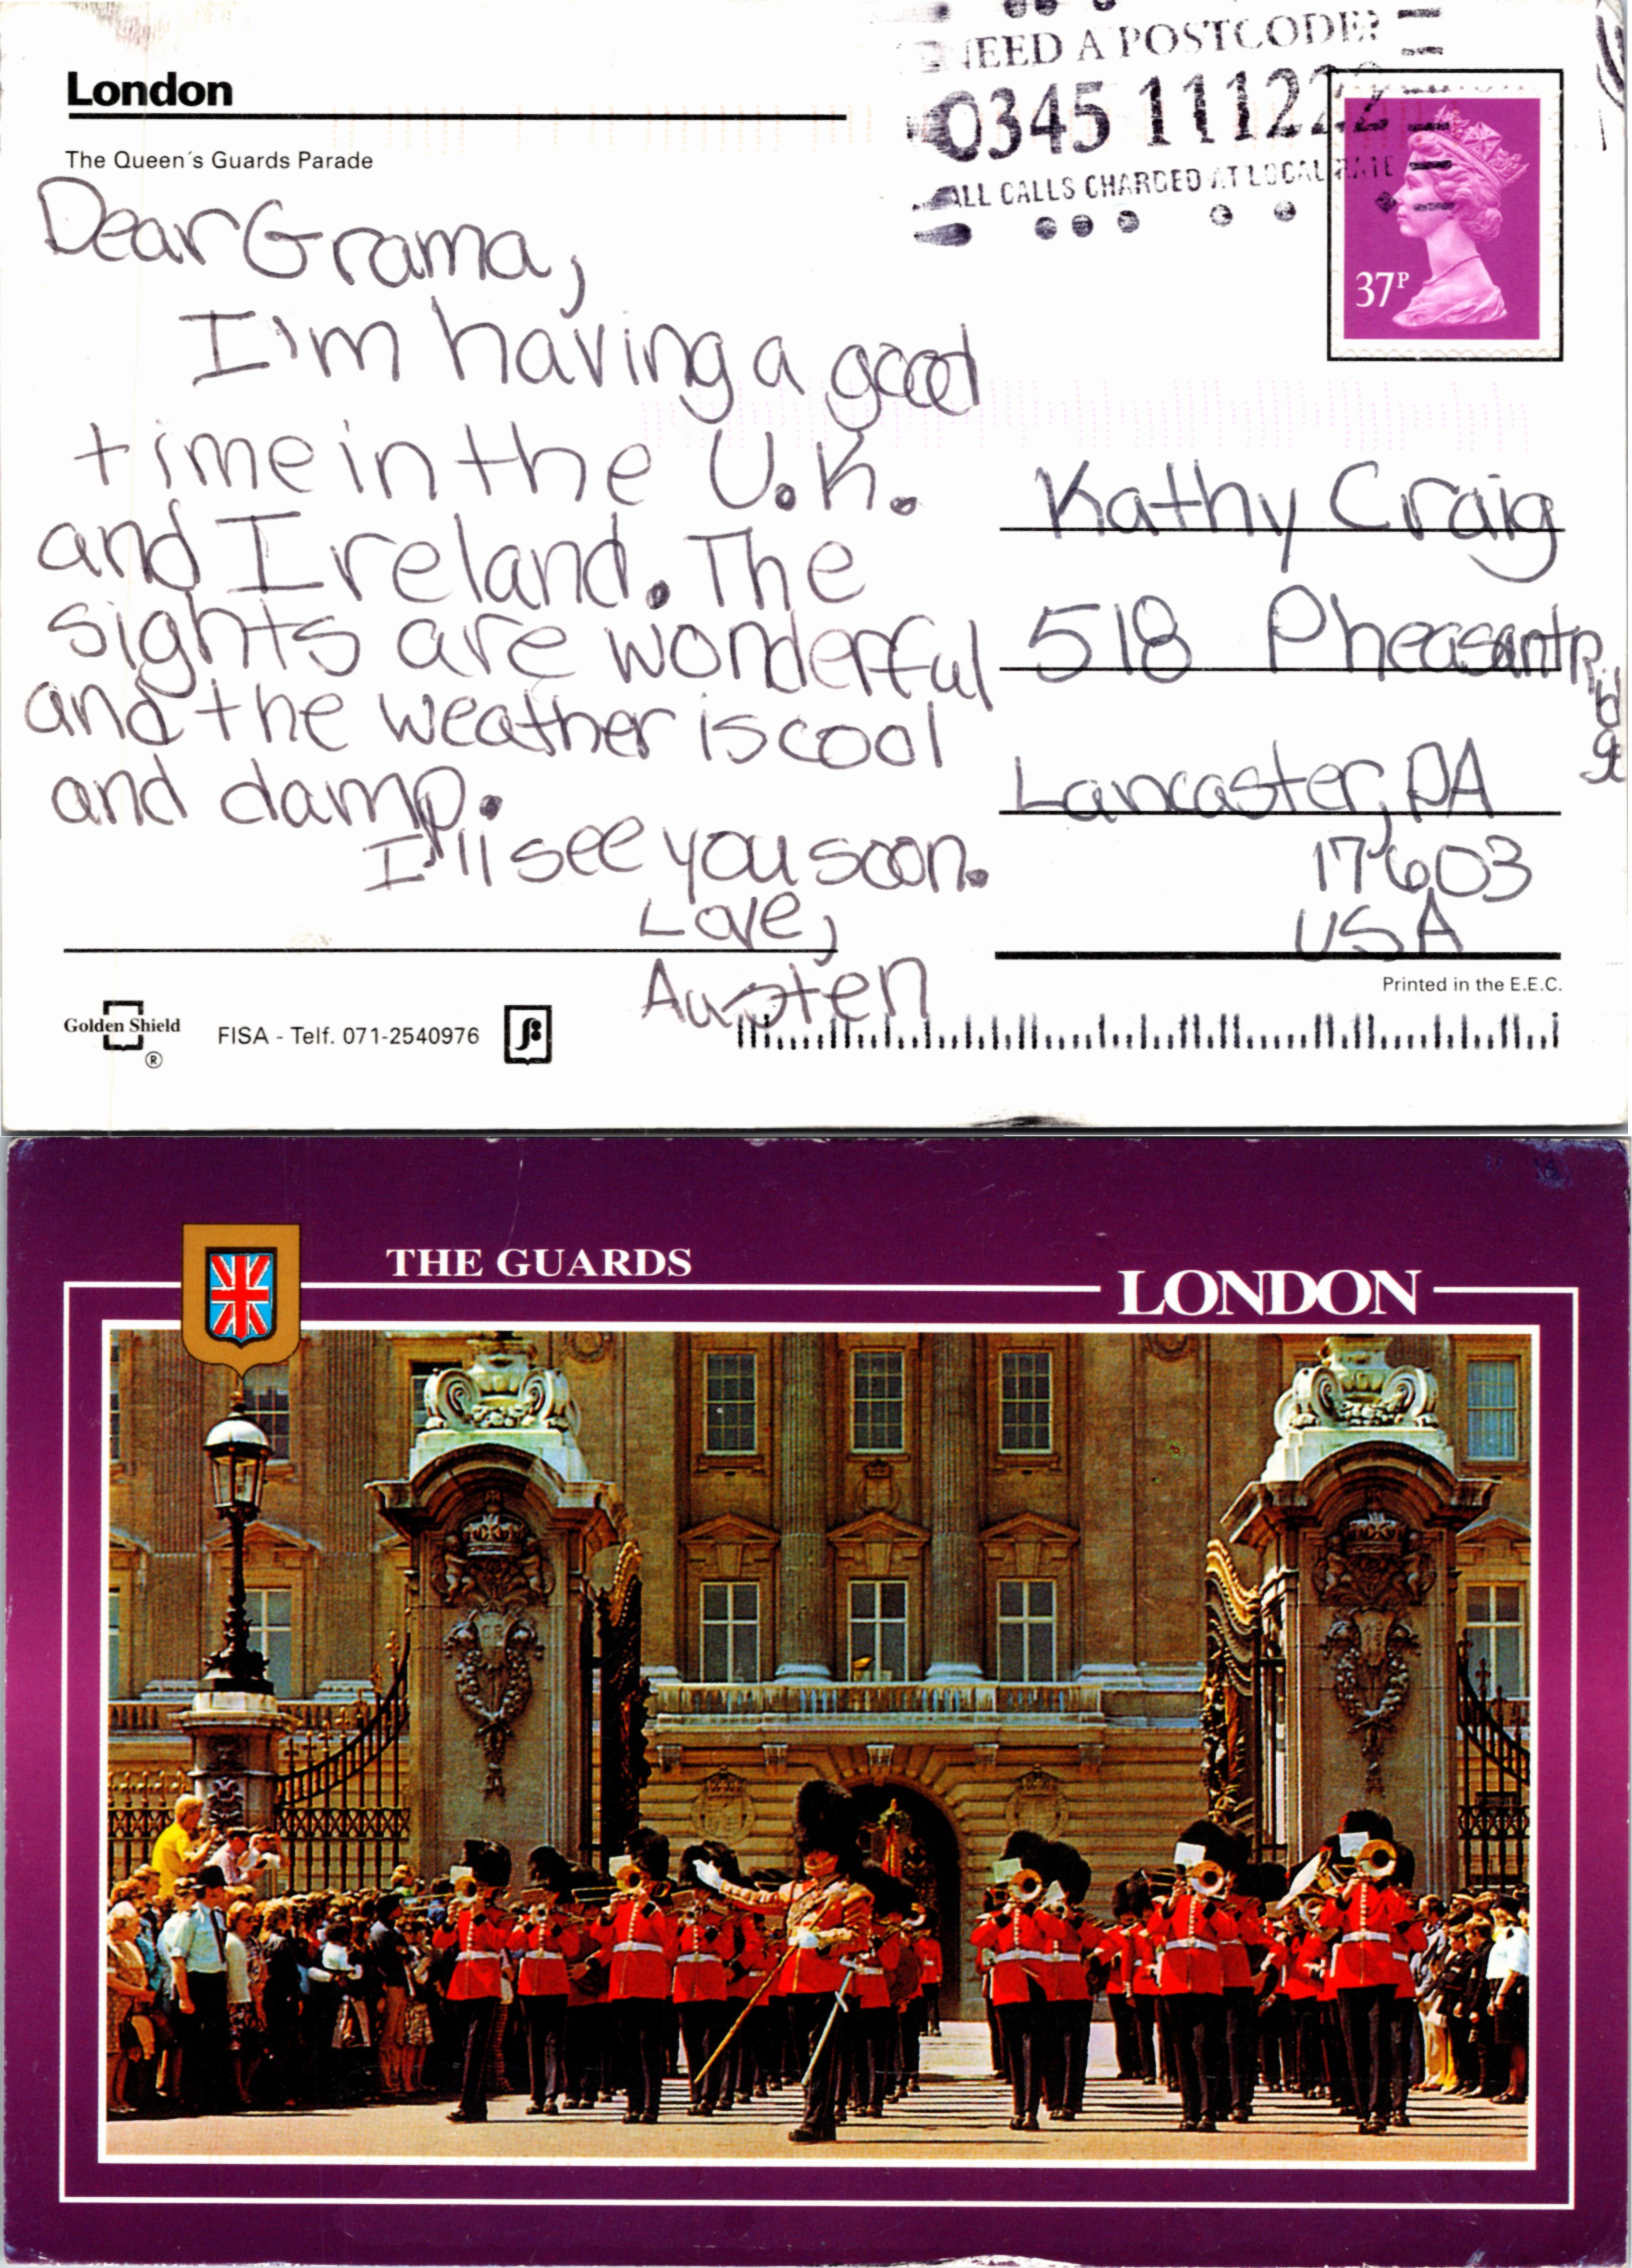 London
The Queen´s Guards Parade
NEED A POSTCODE?
0345 111222
ALL CALLS CHARGED AT LOCAL RATE
37P
Dear Grama,
I'm having a good
time in the U.K.
and Ireland. The
sights are wonderful
and the weather is cool
and damp.
I'll see you soon.
Love,
Austen
Kathy Craig
518 Pheasant Ridge
Lancaster, PA
17603
USA
Printed in the E.E.C.
Golden Shield
®
FISA - Telf. 071-2540976
THE GUARDS
LONDON